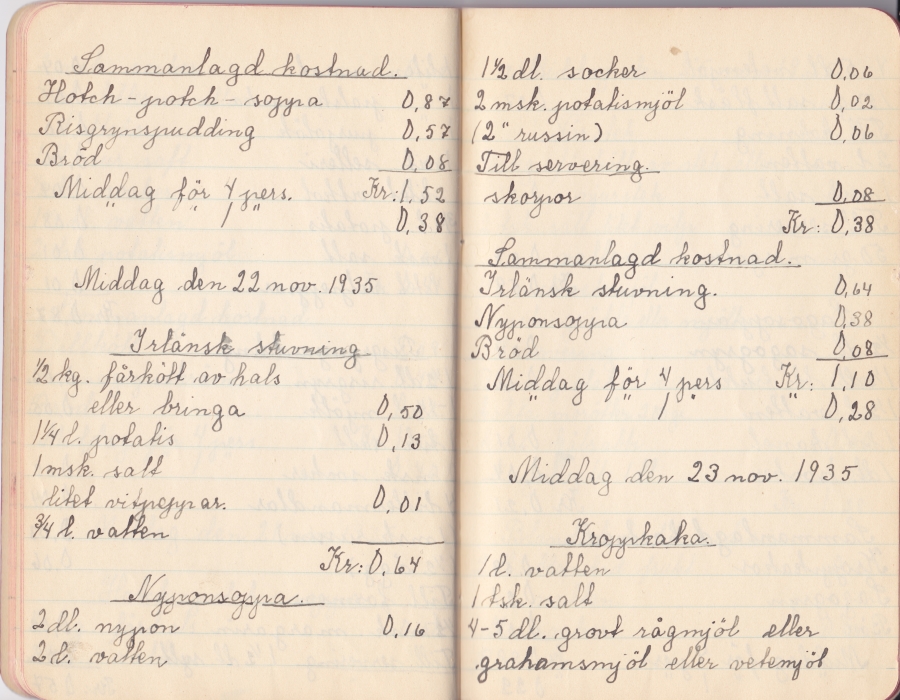 Sammanlagd kostnad.
Hotch-potch-soppa 0,87
Risgrynspudding 0,57
Bröd 0,08
Middag för 4 pers. Kr: 1,52
" " 1 " 0,38
Middag den 22 nov. 1935
Irlänsk stuvning
1/2 kg. fårkött av hals
eller bringa 0,50
1 1/4 l. potatis 0,13
1 msk. salt
litet vitpeppar. 0,01
3/4 l. vatten
Kr: 0,64
Nyponsoppa.
2 dl. nypon 0,16
2 l. vatten
1 1/2 dl. socker 0,06
2 msk. potatismjöl 0,02
(2 " russin) 0,06
Till servering.
skorpor 0,08
Kr: 0,38
Sammanlagd kostnad.
Irlänsk stuvning. 0,64
Nyponsoppa 0,38
Bröd 0,08
Middag för 4 pers Kr: 1,10
" " 1 " " 0,28
Middag den 23 nov. 1935
Kroppkaka.
1 l. vatten
1 tsk. salt
4-5 dl. grovt rågmjöl eller
grahamsmjöl eller vetemjöl